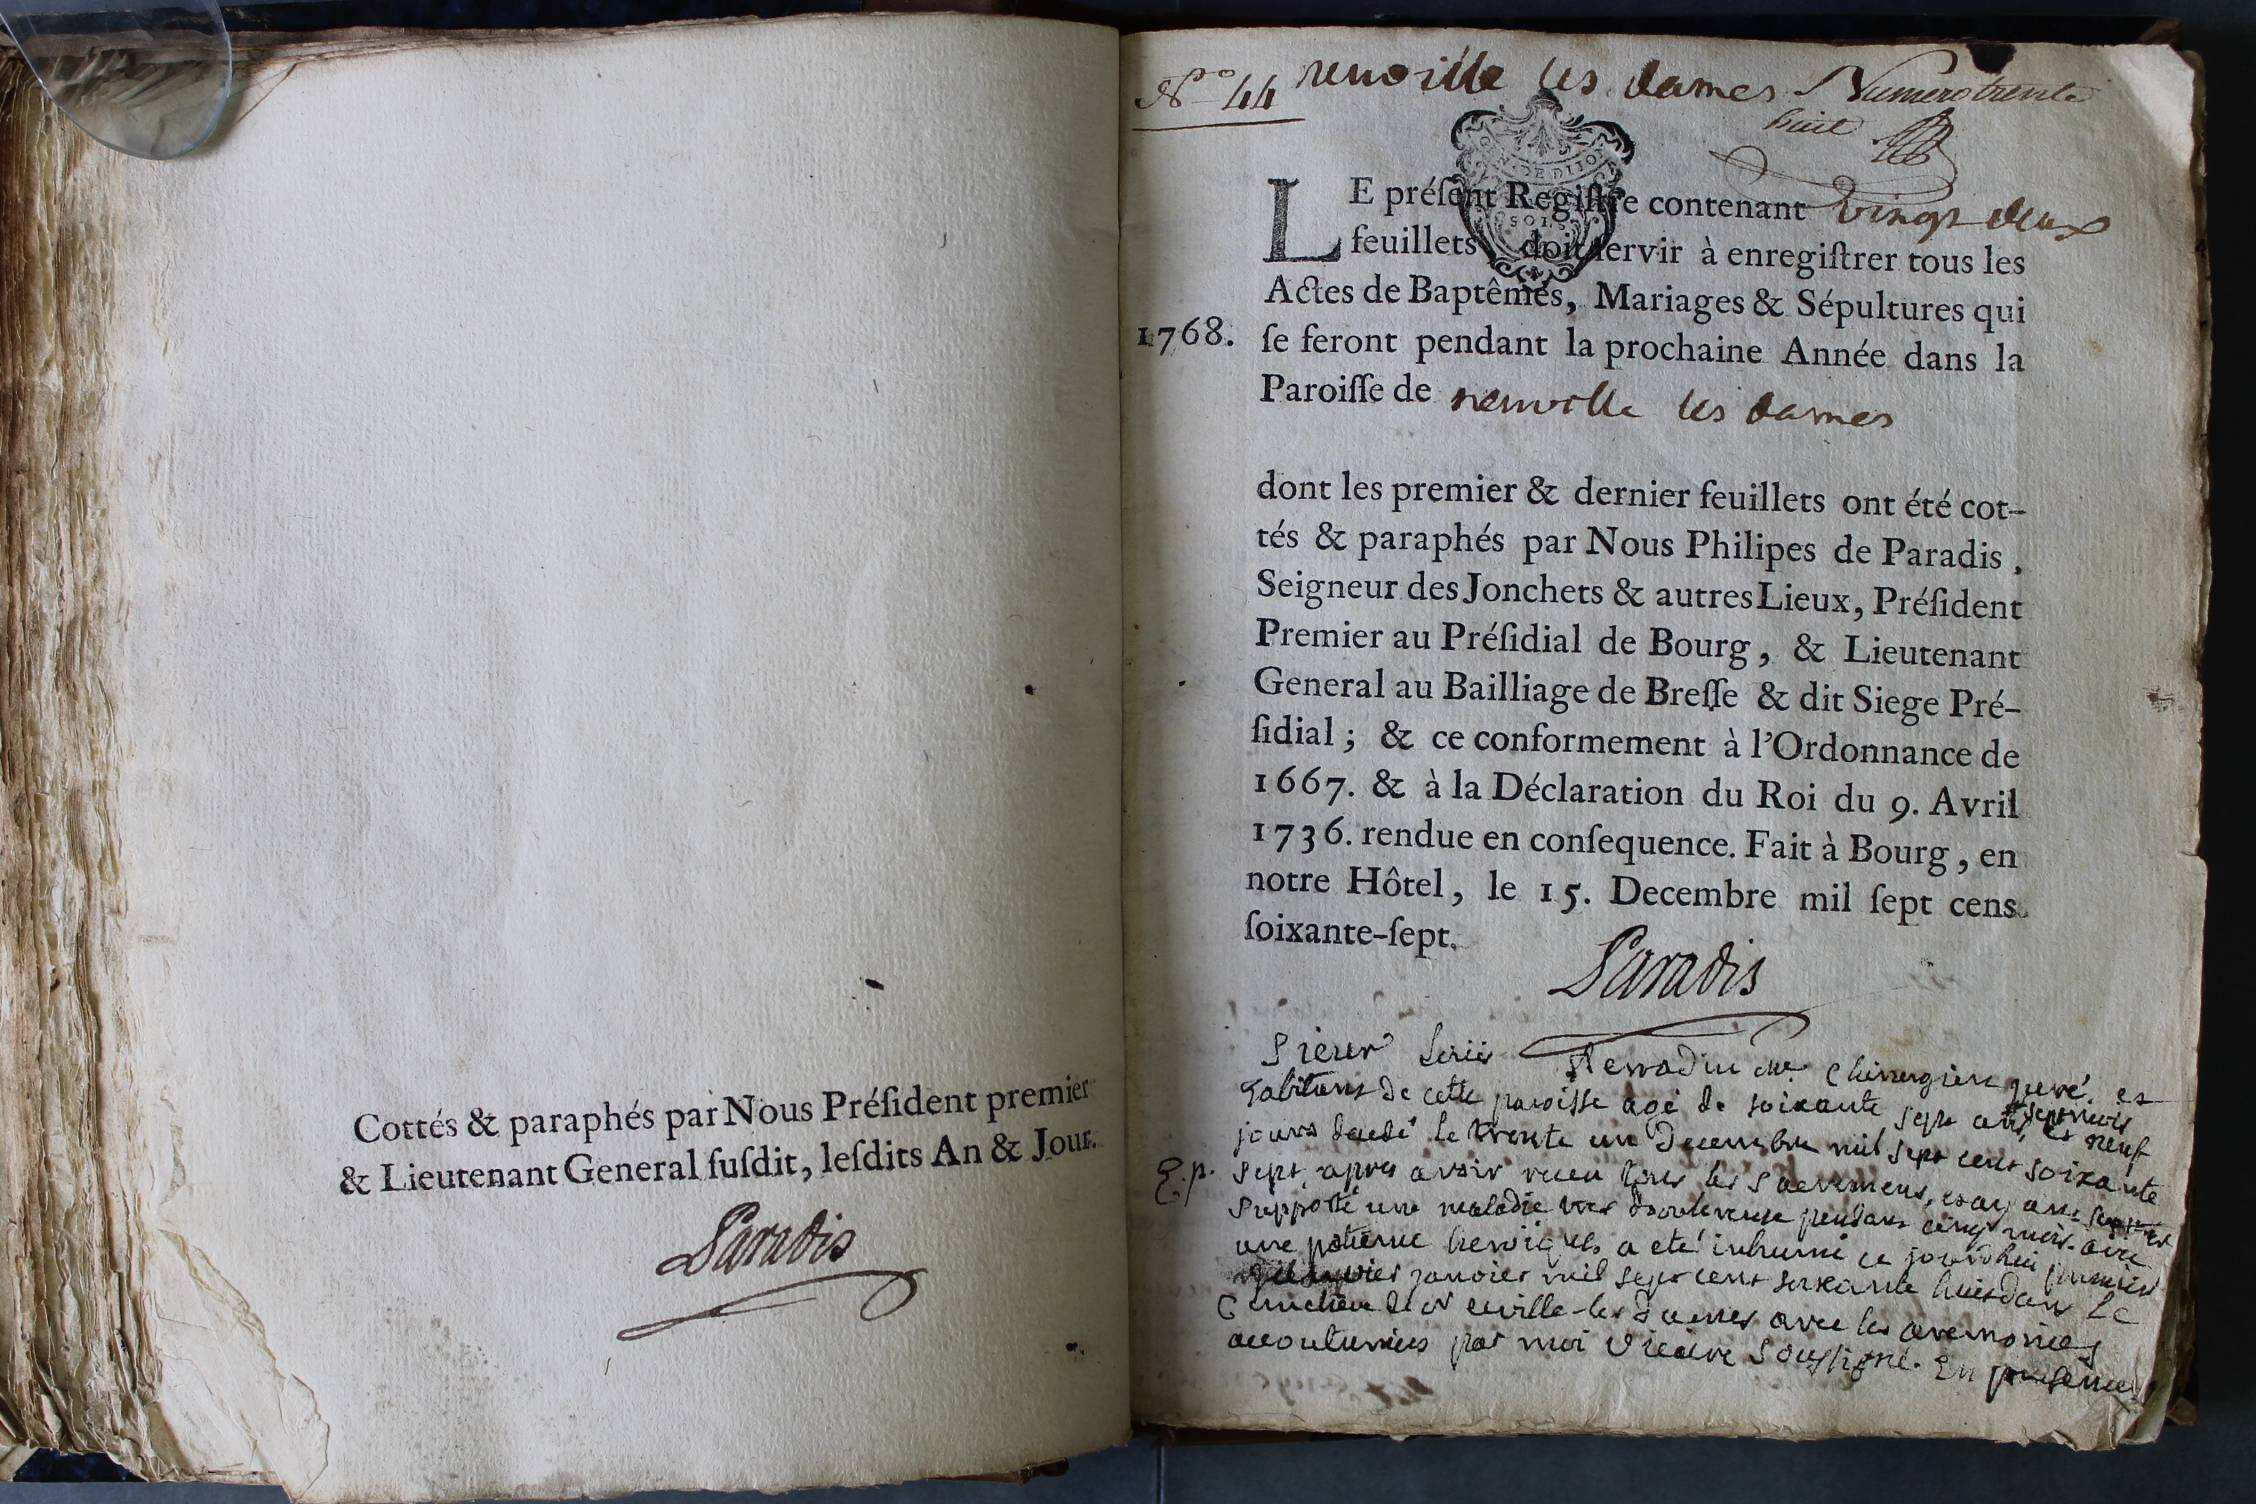 Cottés & paraphés par Nous Préſident premier
& Lieutenant General ſuſdit, leſdits An & Jour.
Paradis
N° 44 neuville les dames Numero trente
huit
GEN. DE DIJON
SOLS
LE préſent Regiſtre contenant vingt deux
feuillets doit ſervir à enregiſtrer tous les
Actes de Baptêmes, Mariages & Sépultures qui
1768. ſe feront pendant la prochaine Année dans la
Paroiſſe de neuville les dames
dont les premier & dernier feuillets ont été cot-
tés & paraphés par Nous Philipes de Paradis,
Seigneur des Jonchets & autres Lieux, Préſident
Premier au Préſidial de Bourg, & Lieutenant
General au Bailliage de Breſſe & dit Siege Pré-
ſidial; & ce conformement à l'Ordonnance de
1667. & à la Déclaration du Roi du 9. Avril
1736. rendue en conſequence. Fait à Bourg, en
notre Hôtel, le 15. Decembre mil ſept cens
ſoixante-ſept.
Paradis
Sieur me Chirurgien juré et
habitant de cette paroisse agé de soixante sept ans sept mois et neuf
jours decedé le trente un decembre mil sept cent soixante
sept, apres avoir receu tous les Sacremens,
supporté une maladie tres douloureuse pendant cinq mois avec
une patience heroique, a eté inhumé ce jourdhui premier
janvier mil sept cent soixante huit dans le
Cimetiere de Neuville-les-dames avec les ceremonies
accoutumées par moi Vicaire Soussigné. En presence